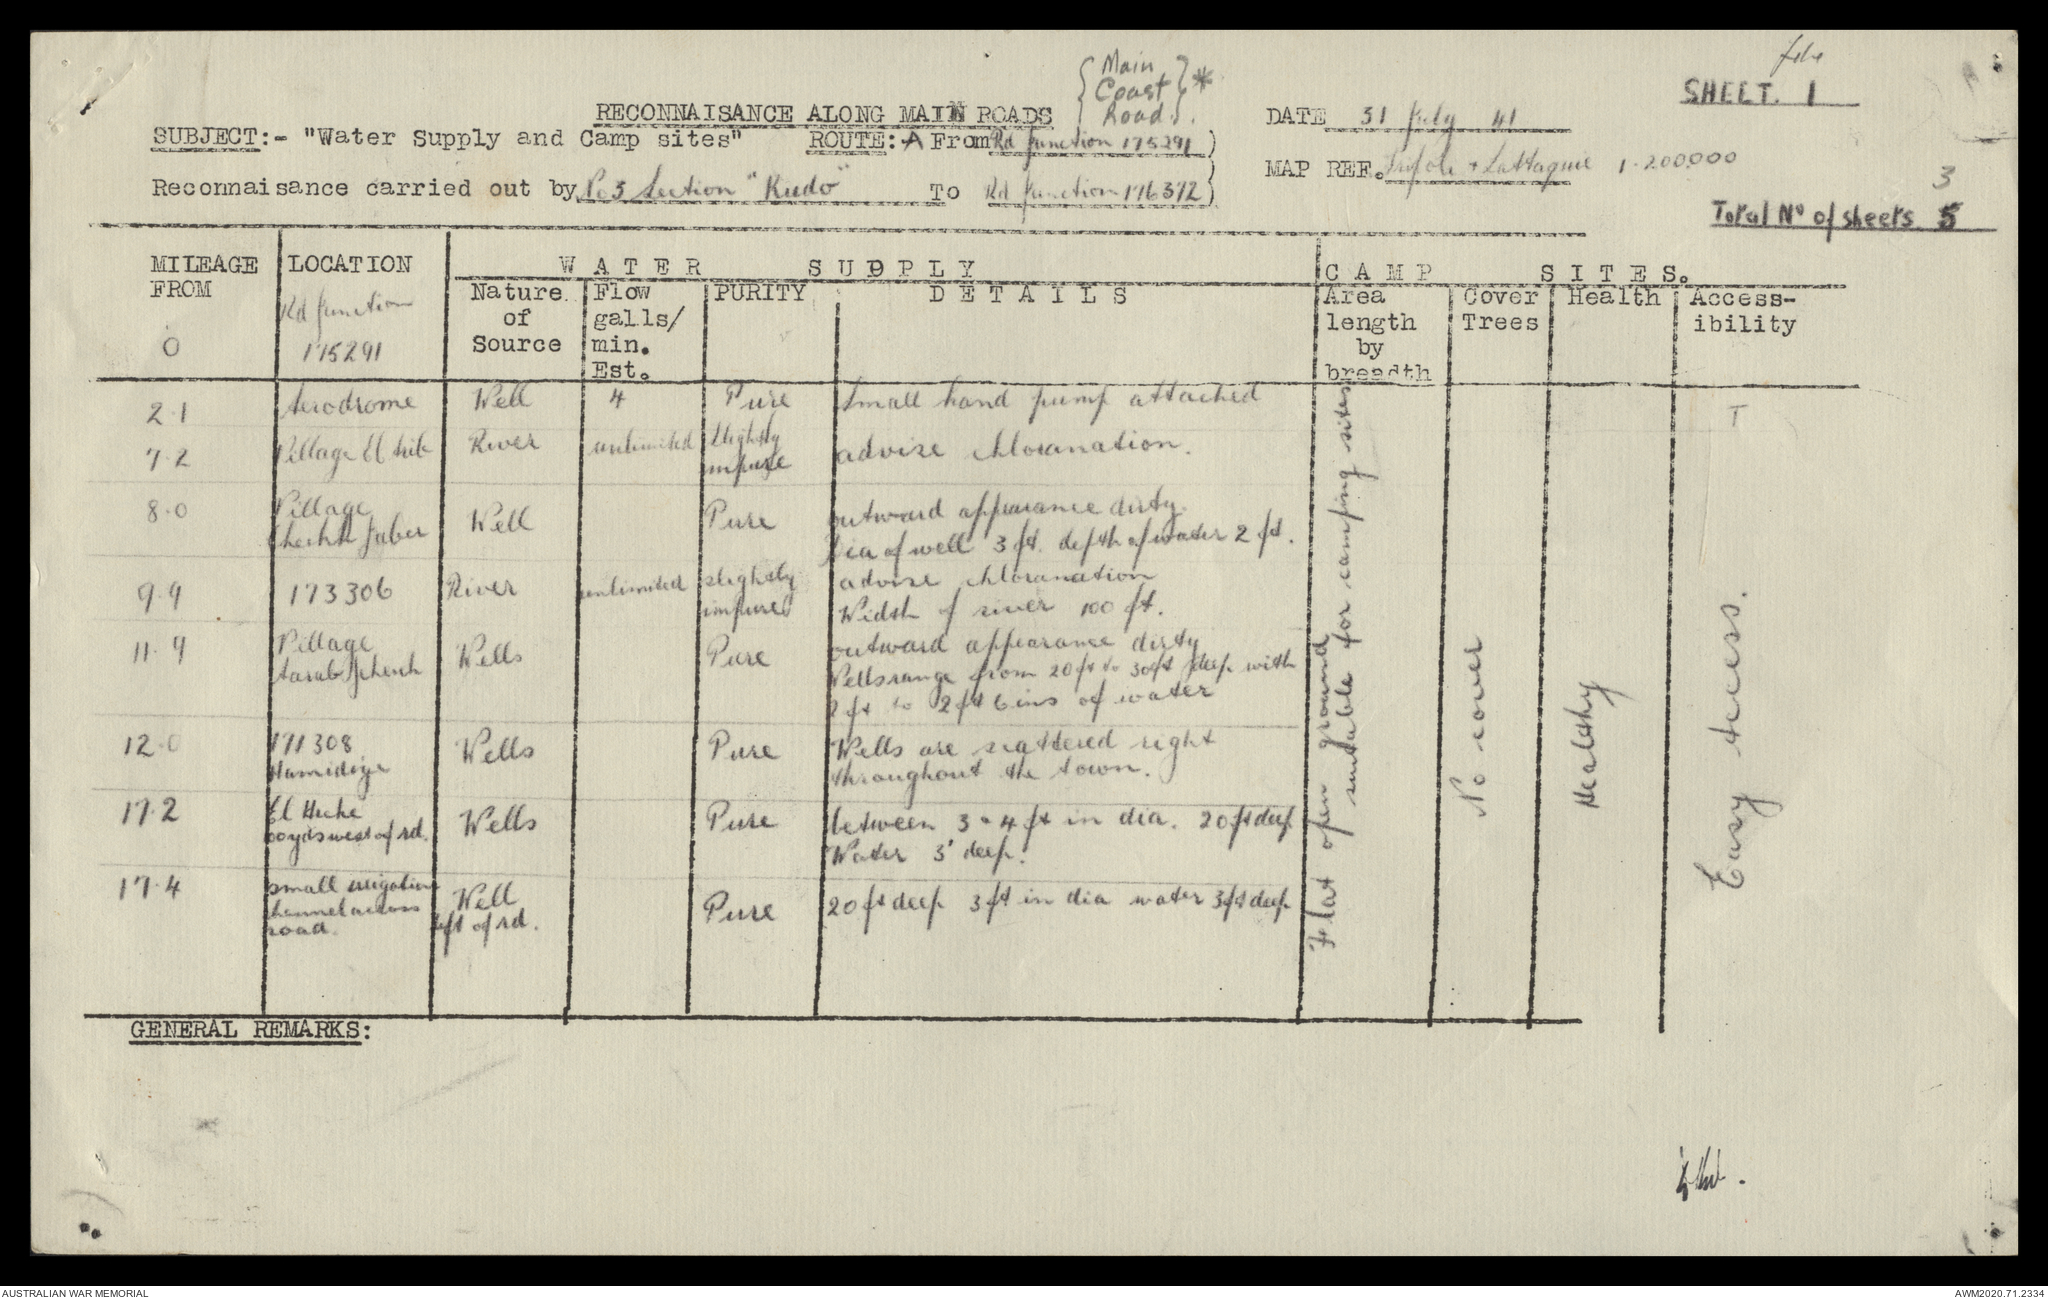 file
SHEET. 1
{Main
Coast
Road.} *
RECONNAISANCE ALONG MAIN ROADS
DATE 31 July 41
SUBJECT:- "Water Supply and Camp sites" ROUTE:- A From Rd Junction 175291)
MAP REF. Tripoli + Lattaquie 1-200000
Reconnaisance carried out by No 3 Section "Kudo" To Rd Junction 176372)
3
Total No of sheets 5
MILEAGE FROM
0
LOCATION
Rd Junction
175291
WATER SUPPLY
Nature of Source
Flow galls/ min. Est.
PURITY
DETAILS
CAMP SITES.
Area length by breadth
Cover Trees
Health
Access-ibility
2.1 Aerodrome Well 4 Pure Small hand pump attached
7.2 Village El River unlimited Slightly impure advise chloranation.
8.0 Village Cheikh Jaber Well Pure outward appearance dirty.
Dia of well 3 ft. depth of water 2 ft.
9.9 173306 River unlimited slightly impure advise chloranation
Width of river 100 ft.
11.4 Village Wells Pure outward appearance dirty
Wells range from 20 ft to 30 ft deep with
2 ft to 2 ft 6 ins of water
12.0 171308 Hamidiye Wells Pure Wells are scattered right
throughout the town.
17.2 El west of rd. Wells Pure between 3 - 4 ft in dia. 20 ft deep
Water 3' deep.
17.4 small irrigation channel across road. Well left of rd. Pure 20 ft deep 3 ft in dia water 3 ft deep
Flat open ground
suitable for camping sites
No cover
Healthy
Easy access.
GENERAL REMARKS:
AUSTRALIAN WAR MEMORIAL
AWM2020.71.2334